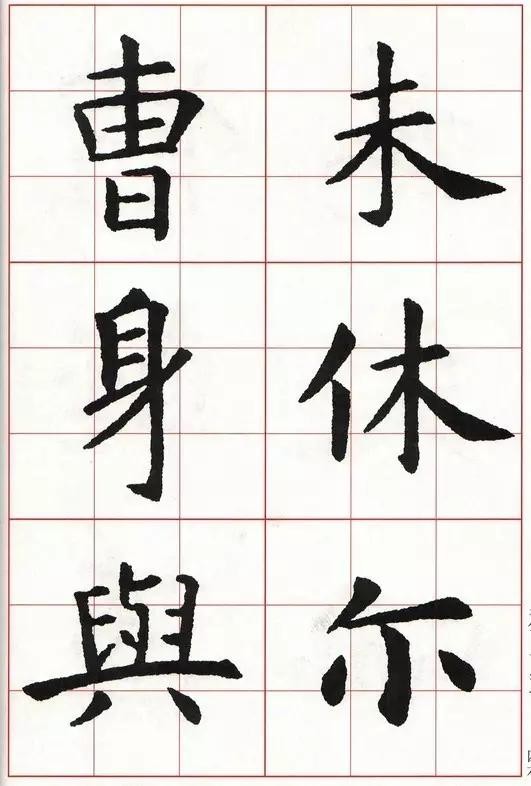 未休尔
曹身與